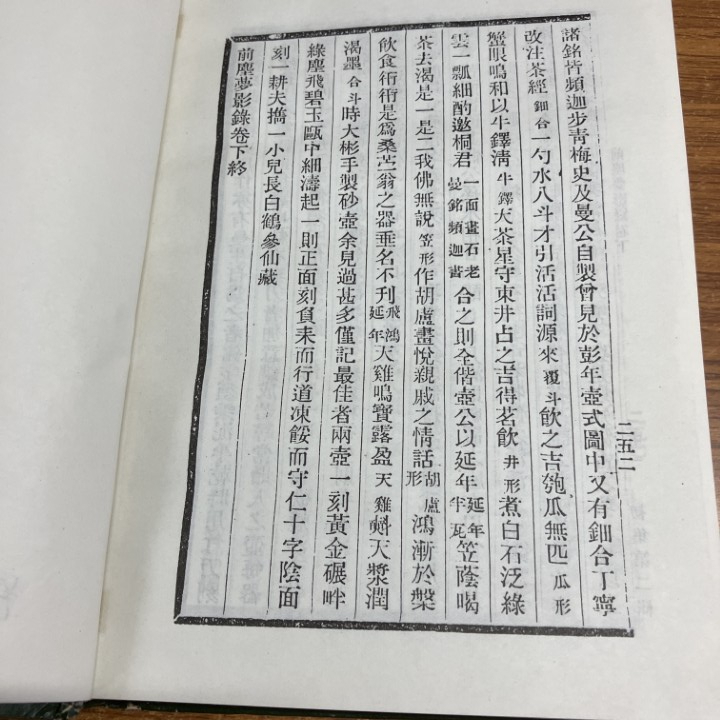 諸銘皆頻迦步青梅史及曼公自製曾見於彭年壺式圖中又有鈿合丁寧
改注茶經鈿合一勺水八斗才引活活詞源來覆斗飲之吉匏瓜無匹瓜形
蟹眼鳴和以牛鐸清牛鐸天茶星守東井占之吉得茗飲井形煮白石泛綠
雲一瓢細酌邀桐君一面畫石老曼銘頻迦書合之則全偕壺公以延年延年半瓦笠蔭暍
茶去渴是一是二我佛無說笠形作胡盧畫悅親戚之情話胡盧形鴻漸於槃
飲食衎衎是為桑苧翁之器垂名不刊飛鴻延年天雞鳴寶露盈天雞斟天漿潤
渴墨合斗時大彬手製砂壺余見過甚多僅記最佳者兩壺一刻黃金碾畔
綠塵飛碧玉甌中細濤起一則正面刻負耒而行道凍餒而守仁十字陰面
刻一耕夫攜一小兒長白鶴參仙藏
前塵夢影錄卷下終
二五二